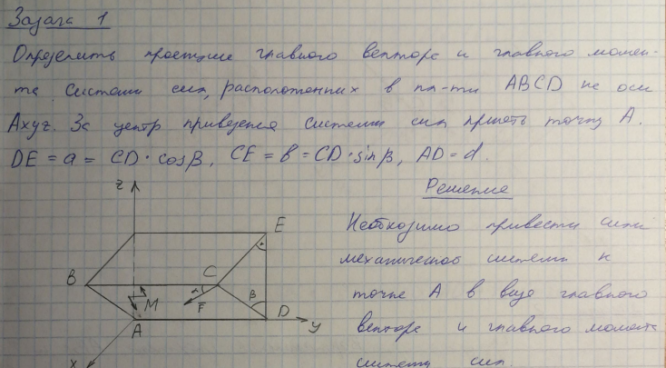 Задача 1
Определить проекции главного вектора и главного момен-
та системы сил, расположенных в пл-ти ABCD на оси
Axyz. За центр приведения системы сил принять точку A.
DE = a = CD · cosβ, CE = b = CD · sinβ, AD = d.
Решение
Необходимо привести силы
механической системы к
точке A в виде главного
вектора и главного момента
системы сил.
z
E
B
C
α
β
M
F
D
A
y
x